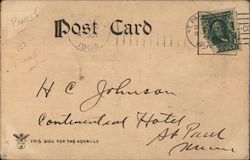 Post Card
1905
H C Johnson
Continental Hotel
St Paul
Minn
THIS SIDE FOR THE ADDRESS